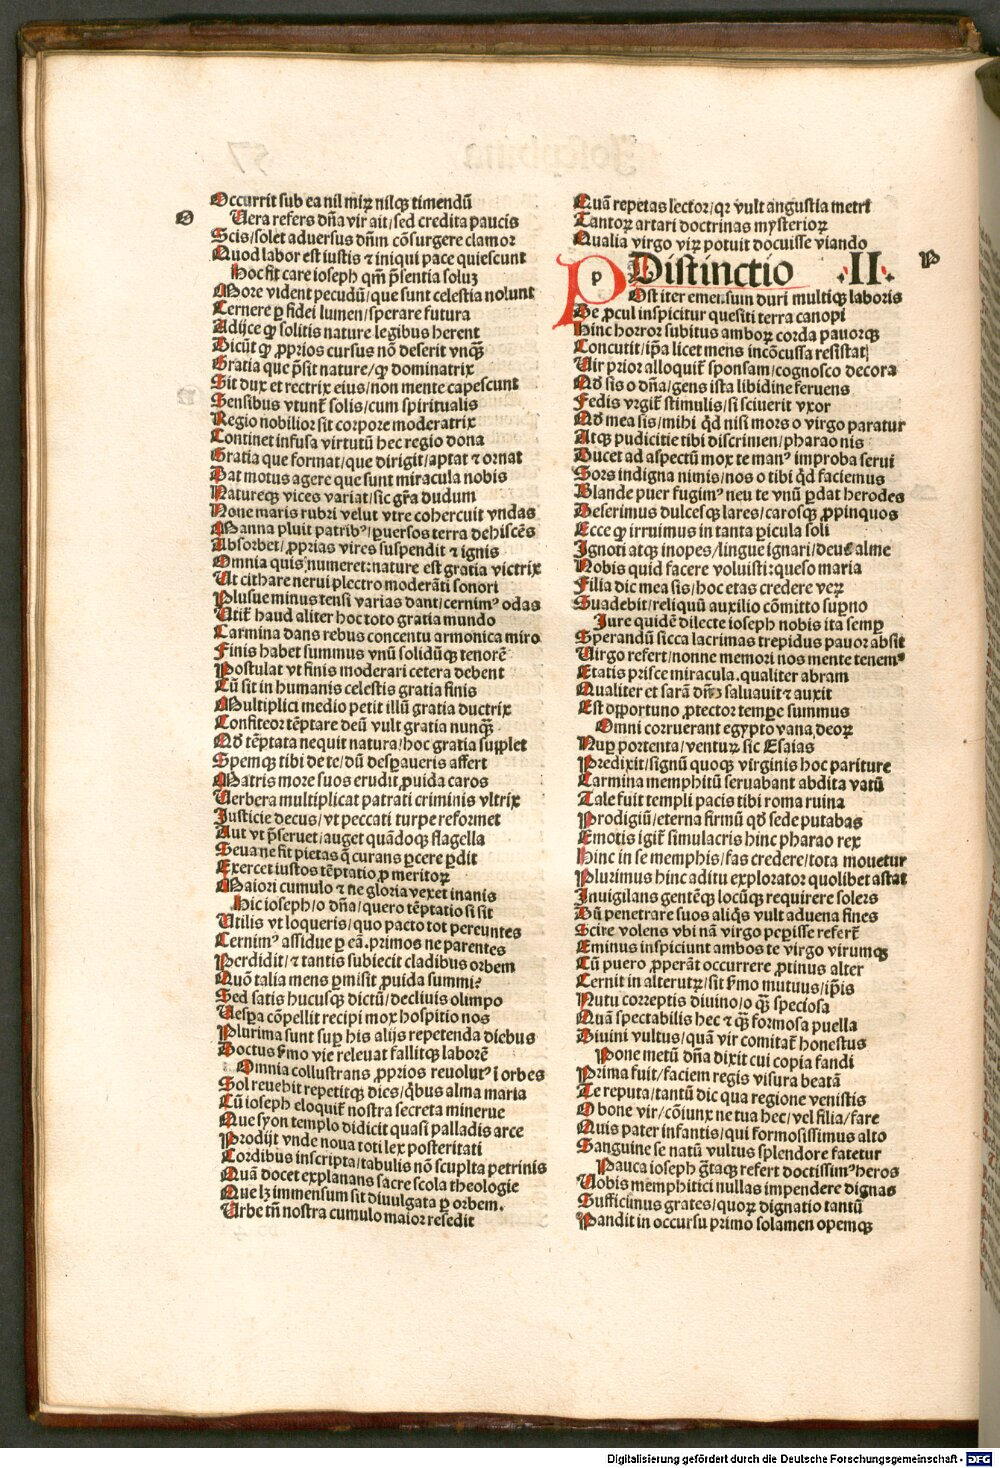 Occurrit sub ea nil miꝝ nilqꝫ timendū
O
Uera refers dña vir ait/sed credita paucis
Scis/solet aduersus dñm cōsurgere clamor
Quod labor est iustis ⁊ iniqui pace quiescunt
Hoc fit care ioseph qm̄ p̄sentia soluꝫ
More vident pecudū/que sunt celestia nolunt
Cernere ꝑ fidei lumen/sperare futura
Adijce ꝙ solitis nature legibus herent
Dicūt ꝙ ꝓprios cursus nō deserit vnqꝫ̄
Gratia que p̄sit nature/ꝙ dominatrix
Sit dux et rectrix eius/non mente capescunt
Sensibus vtunt̄ solis/cum spiritualis
Regio nobilior sit corpore moderatrix
Continet infusa virtutū hec regio dona
Gratia que format/que dirigit/aptat ⁊ ornat
Dat motus agere que sunt miracula nobis
Natureqꝫ vices variat/sic gr̄a dudum
None maris rubri velut vtre cohercuit vndas
Manna pluit patribꝰ/ꝑuersos terra dehiscēs
Absorbet/ꝓprias vires suspendit ⁊ ignis
Omnia quis numeret:nature est gratia victrix
Ut cithare nerui plectro moderāti sonori
Plusue minus tensi varias dant/cernimꝰ odas
Utik̄ haud aliter hoc toto gratia mundo
Carmina dans rebus concentu armonica miro
Finis habet summus vnū solidūqꝫ tenorē
Postulat vt finis moderari cetera debent
Cū sit in humanis celestis gratia finis
Multiplici medio petit illū gratia ductrix
Confiteor tēptare deū vult gratia nunqꝫ̄
Nō tēptata nequit natura/hoc gratia supplet
Spemqꝫ tibi de te/dū desꝑaueris affert
Matris more suos erudit ꝓuida caros
Uerbera multiplicat patrati criminis vltrix
Justicie decus/vt peccati turpe reformet
Aut vt p̄seruet/auget quādoqꝫ flagella
Seua ne fit pietas q̄ curans ꝑcere ꝑdit
Exercet iustos tēptatio ꝓ meritoꝝ
Maiori cumulo ⁊ ne gloria vexet inanis
Hic ioseph/o dña/quero tēptatio si sit
Utilis vt loqueris/quo pacto tot pereuntes
Cernimꝰ assidue ꝑ eā.primos ne parentes
Perdidit/⁊ tantis subiecit cladibus orbem
Quō talia mens ꝑmisit ꝓuida summi?
Sed satis hucusqꝫ dictū/decliuis olimpo
Uesꝑa cōpellit recipi mox hospitio nos
Plurima sunt suꝑ his alijs repetenda diebus
Doctus ẜmo vie releuat fallitqꝫ laborē
Omnia collustrans ꝓprios reuolutꝰ ī orbes
Sol reuehit repetitqꝫ dies/qͥbus alma maria
Cū ioseph eloquik̄ nostra secreta minerue
Que syon templo didicit quasi palladis arce
Prodijt vnde noua toti lex posteritati
Cordibus inscripta/tabulis nō sculpta petrinis
Quā docet explanans sacre scola theologie
Que lꝫ immensum sit diuulgata ꝑ orbem.
Urbe tn̄ nostra cumulo maior resedit
Quā repetas lector/qꝛ vult angustia metri
Tantoꝝ artari doctrinas mysterioꝝ
Qualia virgo viꝝ potuit docuisse viando
Distinctio .II.
P
p
Ost iter emensum duri multiqꝫ laboris
De ꝓcul inspicitur quesiti terra canopi
Hinc horror subitus amboꝝ corda pauorqꝫ
Concutit/ip̄a licet mens incōcussa resistat
Uir prior alloquik̄ sponsam/cognosco decora
Nō sis o dña/gens ista libidine feruens
Fedis vrgik̄ stimulis/si sciuerit vxor
Nō mea sis/mihi qd̄ nisi mors o virgo paratur
Atqꝫ pudicitie tibi discrimen/pharaonis
Ducet ad aspectū mox te manꝰ improba serui
Sors indigna nimis/nos o tibi qd̄ faciemus
Blande puer fugimꝰ neu te vnū ꝑdat herodes
Deserimus dulcesqꝫ lares/carosqꝫ ꝓpinquos
Ecce ꝙ irruimus in tanta ꝑicula soli
Ignoti atqꝫ inopes/lingue ignari/deus alme
Nobis quid facere voluisti:queso maria
Filia dic mea sis/hoc etas credere veꝝ
Suadebit/reliquū auxilio cōmitto suꝑno
Jure quidē dilecte ioseph nobis ita semꝑ
Sperandū sicca lacrimas trepidus pauor absit
Uirgo refert/nonne memori nos mente tenemꝰ
Etatis prisce miracula.qualiter abram
Qualiter et sarā dn̄s saluauit ⁊ auxit
Est oꝑportuno ꝓtector temꝑe summus
Omni corruerant egypto vana deoꝝ
Nuꝑ portenta/ventuꝝ sic Esaias
Predixit/signū quoqꝫ virginis hoc pariture
Carmina memphitū seruabant abdita vatū
Tale fuit templi pacis tibi roma ruina
Prodigiū/eterna firmū qd̄ sede putabas
Emotis igik̄ simulacris hinc pharao rex
Hinc in se memphis/fas credere/tota mouetur
Plurimus hinc aditu explorator quolibet astat
Inuigilans gentēqꝫ locūqꝫ requirere solers
Dū penetrare suos aliq̄s vult aduena fines
Scire volens vbi nā virgo peꝑisse referk̄
Eminus inspiciunt ambos te virgo virumqꝫ
Cū puero ꝓperāt occurrere ꝓtinus alter
Cernit in alterutꝝ/sit ẜmo mutuus/ip̄is
Nutu correptis diuino/o qꝫ̄ speciosa
Quā spectabilis hec ⁊ qꝫ̄ formosa puella
Diuini vultus/quā vir comitak̄ honestus
Pone metū dña dixit cui copia fandi
Prima fuit/faciem regis visura beatā
Te reputa/tantū dic qua regione venistis
O bone vir/cōiunx ne tua hec/vel filia/fare
Quis pater infantis/qui formosissimus alto
Sanguine se natū vultus splendore fatetur
Pauca ioseph g̃taqꝫ refert doctissimꝰ heros
Uobis memphitici nullas impendere dignas
Sufficimus grates/quoꝝ dignatio tantū
Pandit in occursu primo solamen opemqꝫ
Digitalisierung gefördert durch die Deutsche Forschungsgemeinschaft - DFG